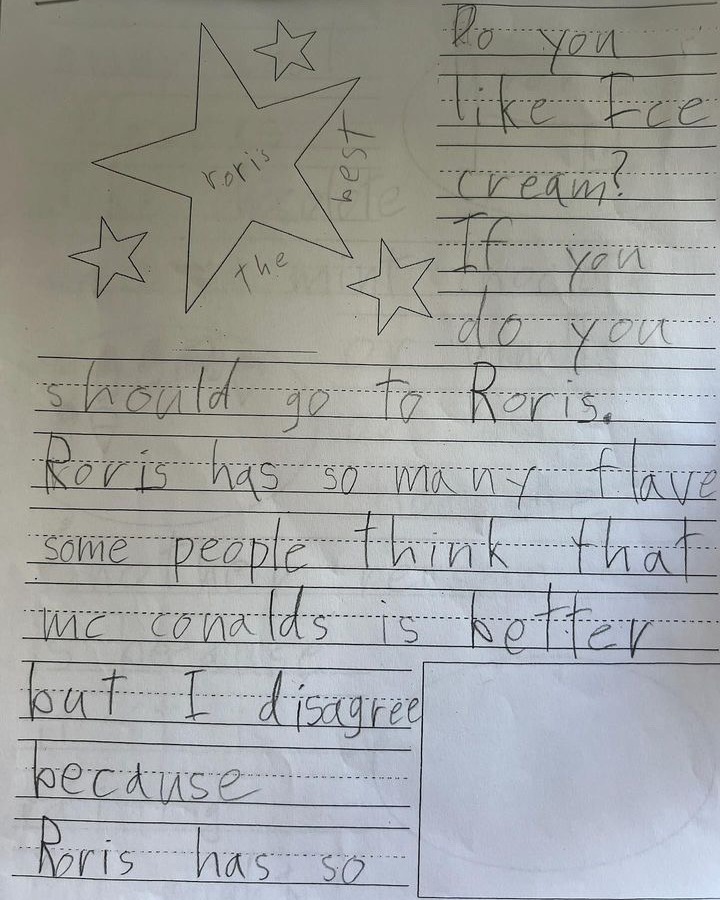 roris
the
best
Do you
like Ice
cream?
If you
do you
should go to Roris.
Roris has so many flave
some people think that
mc conalds is better
but I disagree
because
Roris has so